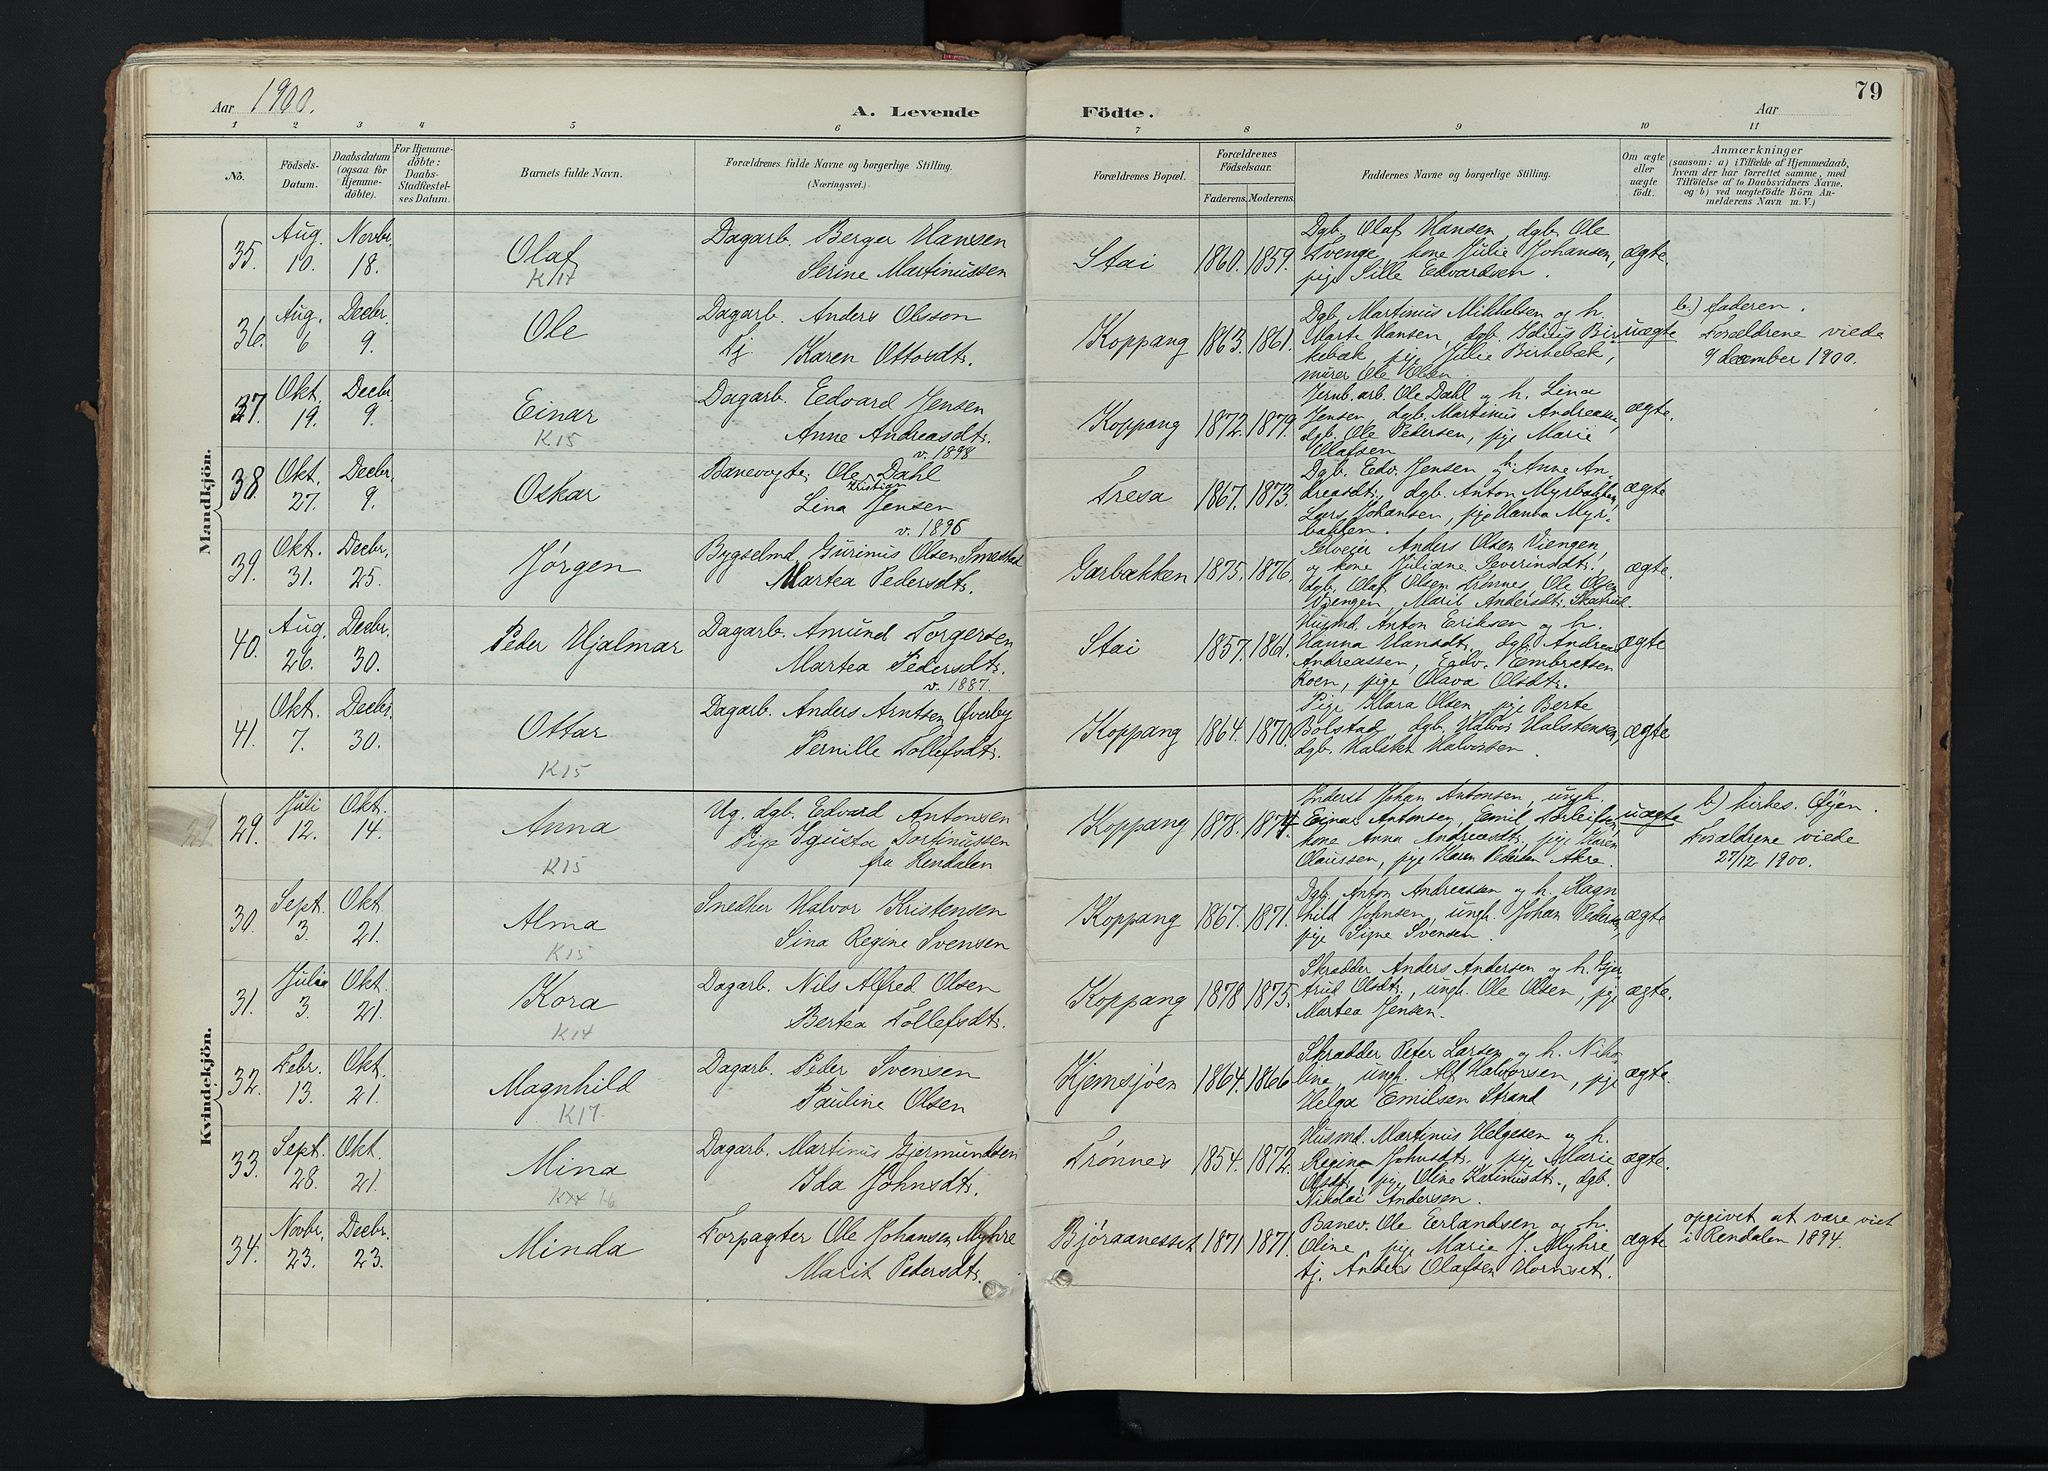 Aar 1900.
A. Levende Födte.
Aar
79
1 2 3 4 5 6 7 8 9 10 11
No.
Födsels-Datum.
Daabsdatum (ogsaa for Hjemme-döbte).
For Hjemme-döbte: Daabs-Stadfæstel-ses Datum.
Barnets fulde Navn.
Forældrenes fulde Navne og borgerlige Stilling. (Næringsvei.)
Forældrenes Bopæl.
Forældrenes Födselsaar.
Faderens. Moderens.
Faddernes Navne og borgerlige Stilling.
Om ægte eller uægte födt.
Anmærkninger
(saasom: a) i Tilfælde af Hjemmedaab, hvem der har forrettet samme, med Tilföielse af to Daabsvidners Navne, og b) ved uægtefödte Börn, Anmelderens Navn m. V.)
Mandkjön.
35. Aug. 10. Novbr. 18. Olaf K14
Dagarb. Berger Hansen
Serine Martinussen
Stai 1860. 1859.
Dgb. Olaf Hansen, dgb. Ole
Tvenge, kone Julie Johansen,
pige Sille Edvardsen.
ægte
36. Aug. 6 Decbr. 9. Ole
Dagarb. Anders Olsson
Tj. Karen Ottosdtr.
Koppang 1863. 1861.
Dgb. Martinus Mikkelsen og h.
Marte Hansen, dgb. Bir-
kebæk, pige Julie Birkebæk,
murer Ole Olsen
uægte
b.) faderen.
Forældrene viede
9 december 1900.
37. Okt. 19. Decbr. 9. Einar K15
Dagarb. Edvard Jensen
Anne Andreasdtr.
v. 1898
Koppang 1872. 1879.
Jernb. arb. Ole Dahl og h. Lina
Jensen, dgb. Martinus Andreassen,
dgb. Ole Pedersen, pige Marie
Olafsen
ægte.
38. Okt. 27. Decbr. 9. Oskar
Banevogter Ole Kristian Dahl
Lina Jensen
v. 1896
Tresa 1867. 1873.
Dgb. Edv. Jensen og h. Anne An-
dreasdtr., dgb. Anton Myrbakken,
Lars Johansen, pige Hanna Myr-
bakken.
ægte
39. Okt. 31. Decbr. 25. Jørgen
Bygselmd. Gurinus Olsen Smestad
Martea Pedersdtr.
Garbækken 1875. 1876.
Selveier Anders Olsen Viengen,
og kone Juliane Severinsdtr.,
dgb. Olaf Olsen Trønnes, Ole Olsen
Viengen, Marit Andersdtr. Skatrud.
ægte.
40. Aug. 26. Decbr. 30. Peder Hjalmar
Dagarb. Amund Torgersen
Martea Pedersdtr.
v. 1887.
Stai 1857. 1861.
Husmd. Anton Eriksen og h.
Hanna Hansdtr., dgb. Andreas
Andreassen, Edv. Embretsen
Roen, pige Olava Olsdtr.
ægte
41. Okt. 7. Decbr. 30. Ottar K15
Dagarb. Anders Arntsen Øverby
Pernille Tollefsdtr.
Koppang 1864. 1870.
Pige Klara Olsen, pige Berte
Bolstad, dgb. Halvor Halstensen,
dgb. Halvorsen.
ægte
Kvindekjön.
29. Juli 12. Okt. 14. Anna K15
Ug. dgb. Edvard Antonsen
Pige Igusta Dortinussen
fra Rendalen
Koppang 1878. 1874
Inderst Johan Antonsen, ungk.
Einar Antonsen, Emil Torleifsen,
kone Anna Andreasdtr., pige Karen
Olaussen, pige Karen Pedersen Akre.
uægte
b) kirkes. Øyen.
Forældrene viede
27/12 1900.
30. Sept. 3. Okt. 21. Alma K15
Snedker Halvor Kristensen
Sina Regine Svensen
Koppang 1867. 1871.
Dgb. Anton Andreassen og h. Ragn-
hild Johnsen, ungk. Johan Pedersen,
pige Signe Svensen.
ægte
31. Juli 3. Okt. 21. Kora K14
Dagarb. Nils Alfred Olsen
Bertea Tollefsdtr.
Koppang 1878 1875.
Skrædder Anders Andersen og h. Gjer-
trud Olsdtr., ungk. Ole Olsen, pige
Martea Jensen.
ægte.
32. Febr. 13. Okt. 21. Magnhild K17
Dagarb. Peder Svensen
Pauline Olsen
Hjemsjøen 1864. 1866
Skrædder Peter Larsen og h. Niko-
line, ungk. Alf Halvorsen, pige
Helga Emilsen Strand
ægte.
33. Sept. 28. Okt. 21. Mina 16
Dagarb. Martinus Gjermundsen
Ida Johnsdtr.
Trønnes 1854. 1872.
Husmd. Martinus Helgesen og h.
Regine Johnsdtr., pige Marie
Olsdtr., pige Oline Karinusdtr., dgb.
Nikolai Andersen.
ægte.
34. Novbr. 23. Decbr. 23. Minda
Forpagter Ole Johansen Myhre
Marit Pedersdtr.
Bjøraanesset 1871 1871.
Banev. Ole Erlandsen og h.
Oline, pige Marie J. Myhre,
tj. Anders Olafsen Hornset.
ægte
opgivet at være viet
i Rendalen 1894.